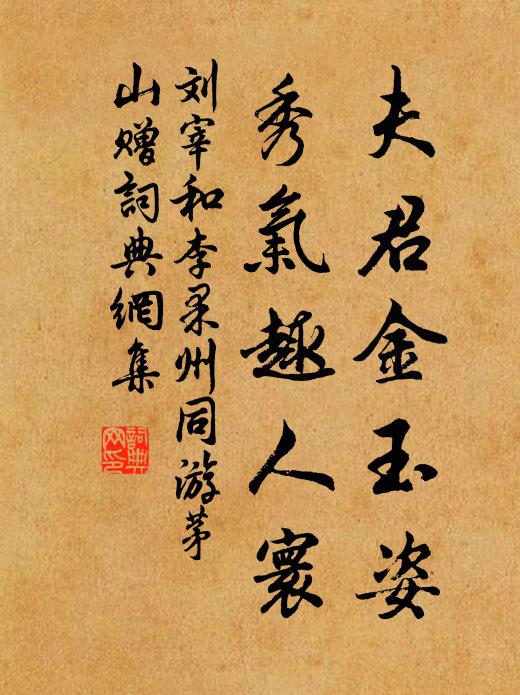 夫君金玉姿
秀氣趣人寰
刘宰和李果州同游茅
山贈詞典網集
詞典
网印